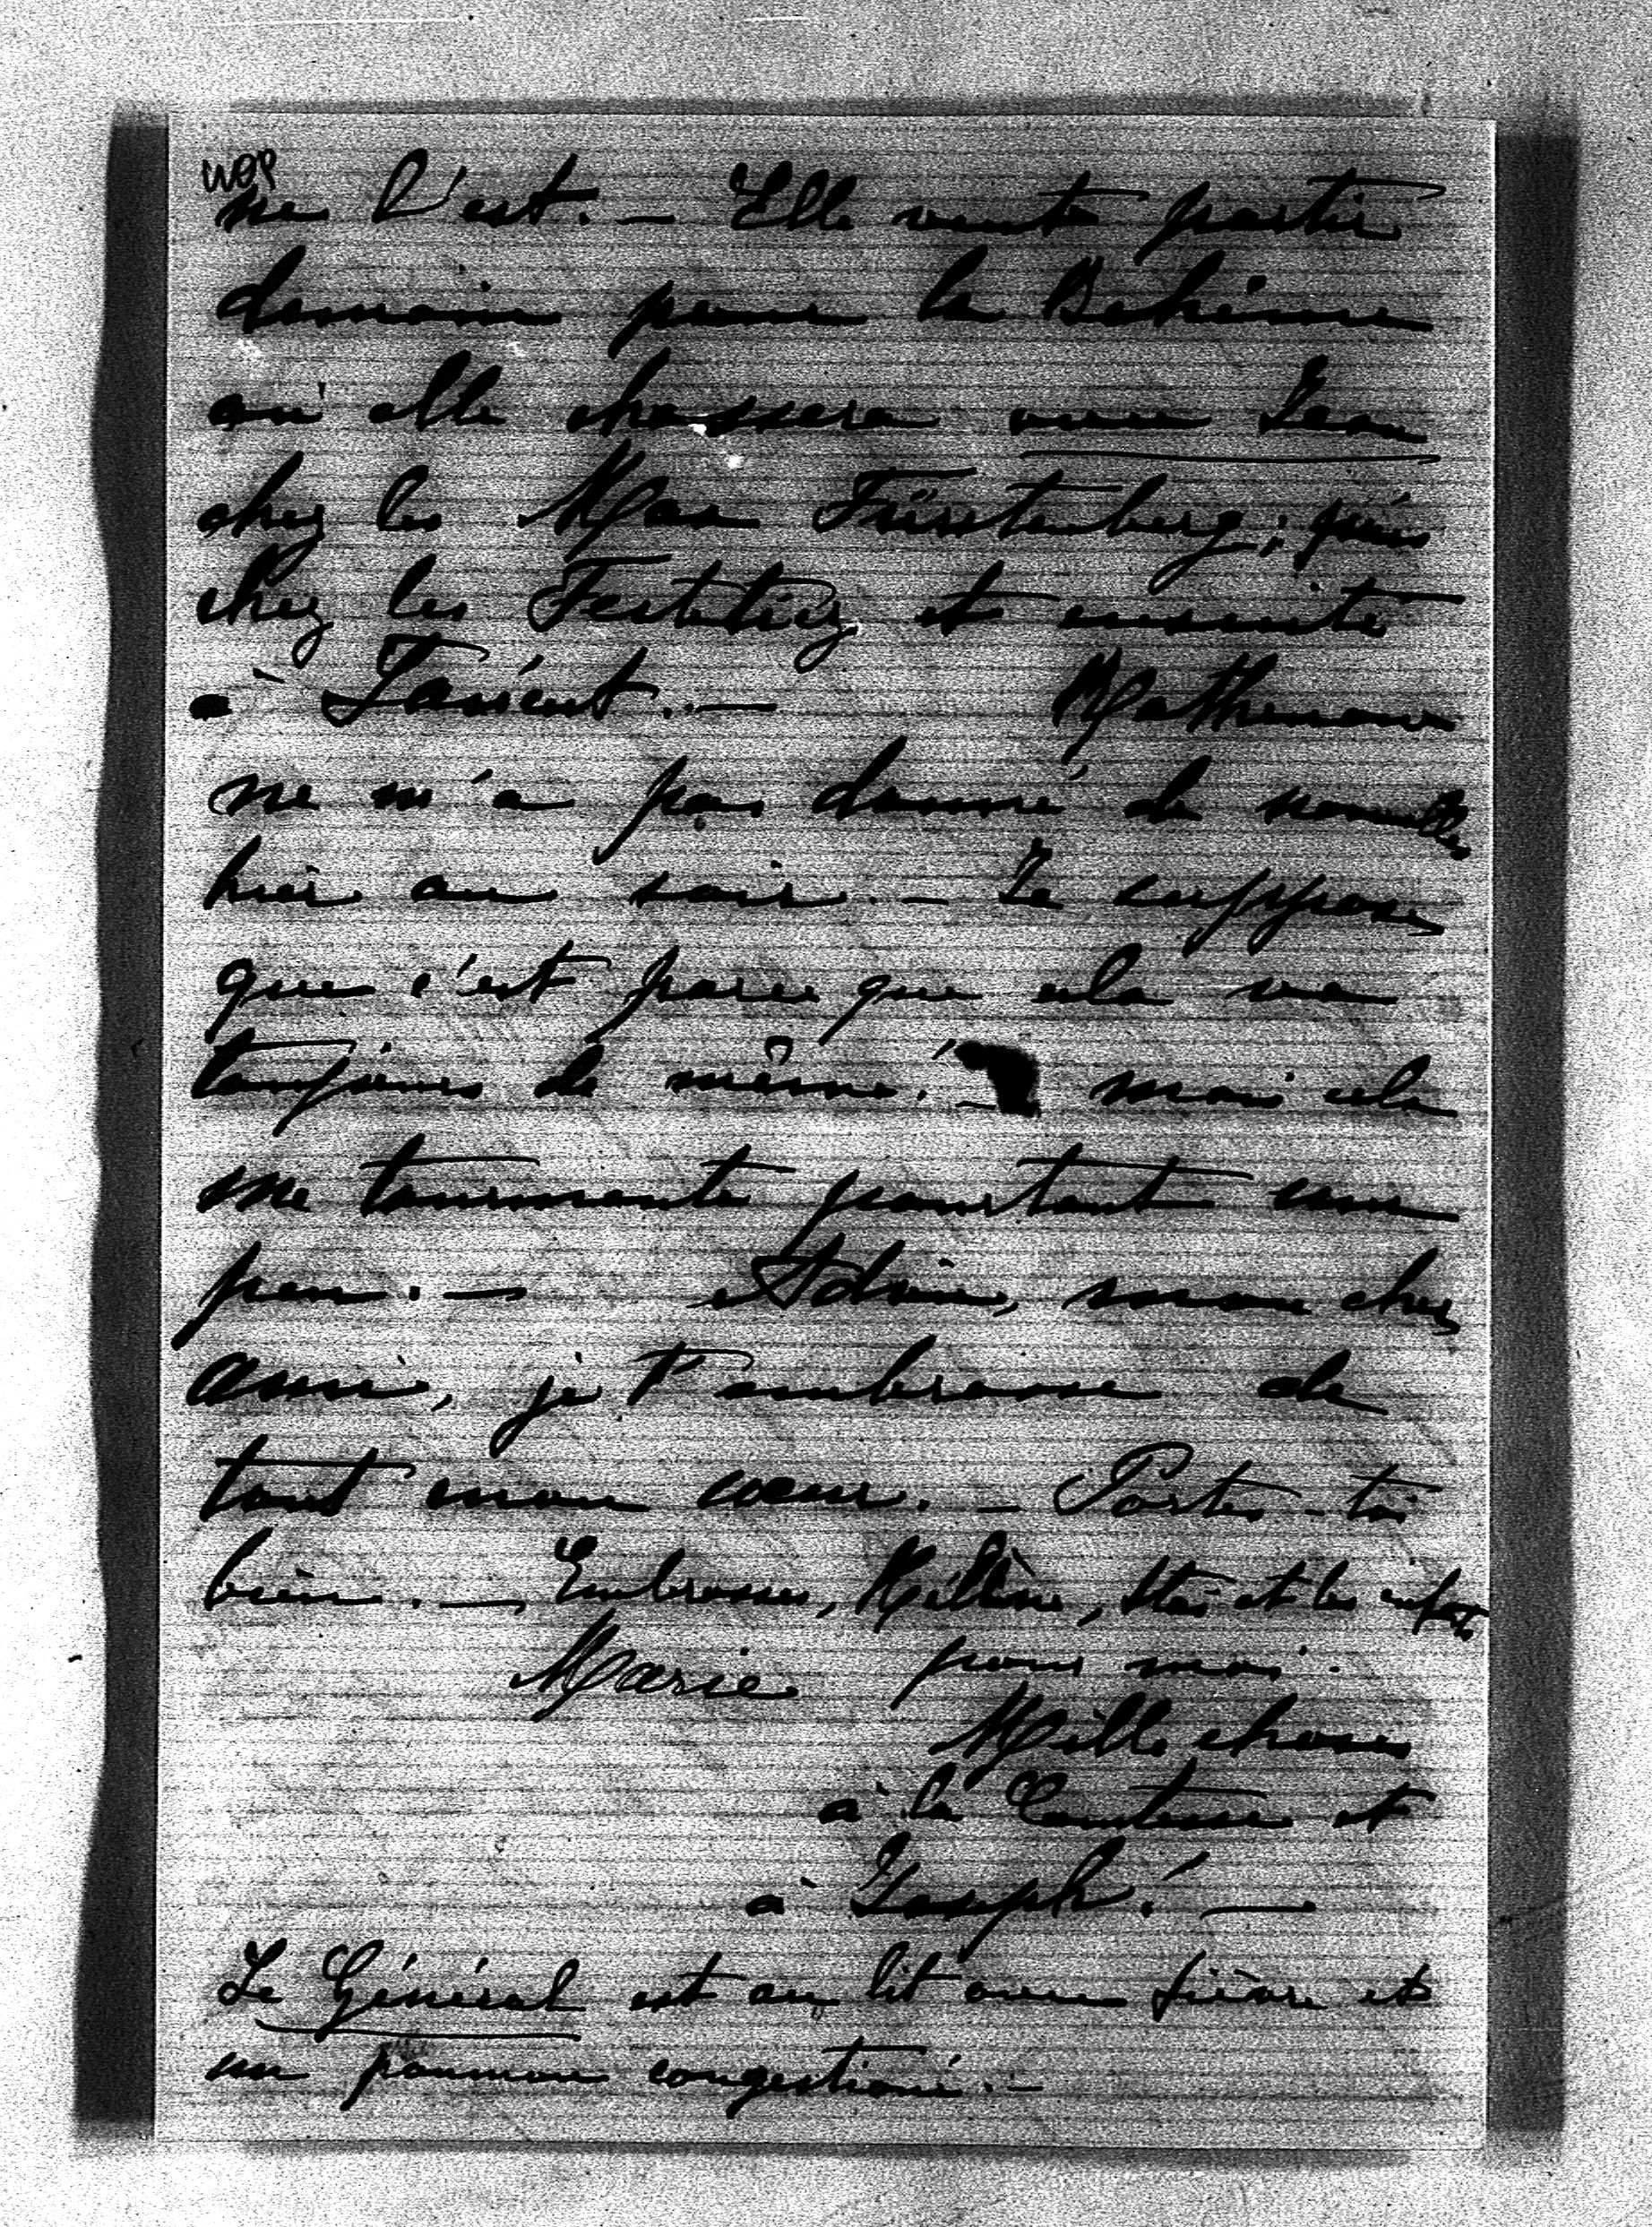 ne l'est. — Elle veut partir
demain pour la Bohême
où elle chassera avec Jean
chez les Max Fürstenberg; puis
chez les Festetics et ensuite
à Lancut. —
ne m'a pas donné de nouvelles
hier au soir. — Je suppose
que c'est parce que cela va
toujours de même! — mais cela
me tourmente pourtant un
peu. — Adieu, mon cher
ami, je t'embrasse de
tout mon cœur. — Portes-toi
bien. — Embrasses, Hélène, et les enfants
pour moi.
Marie
Mille choses
à la Comtesse et
à Joseph! —
Le Général est au lit avec fièvre et
un poumon congestioné. —